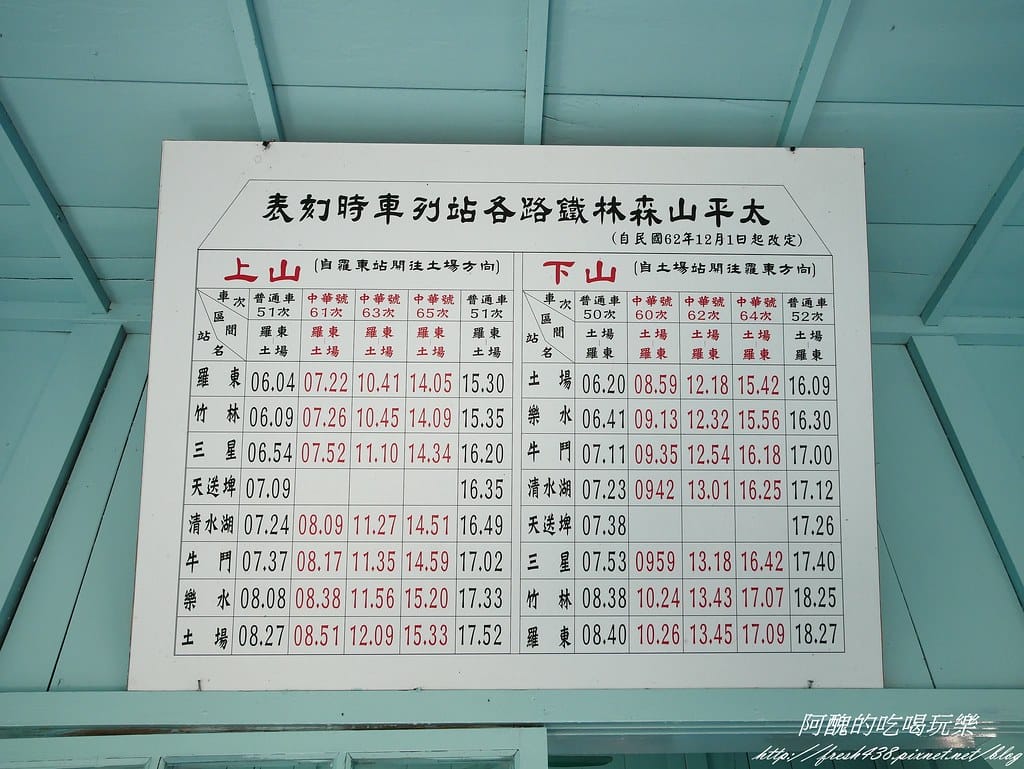 太平山森林鐵路各站列車時刻表
(自民國62年12月1日起改定)
上山 (自羅東站開往土場方向)
車次 區間 站名 普通車 中華號 中華號 中華號 普通車
51次 61次 63次 65次 51次
羅東 羅東 羅東 羅東 羅東
土場 土場 土場 土場 土場
羅東 06.04 07.22 10.41 14.05 15.30
竹林 06.09 07.26 10.45 14.09 15.35
三星 06.54 07.52 11.10 14.34 16.20
天送埤 07.09 16.35
清水湖 07.24 08.09 11.27 14.51 16.49
牛鬥 07.37 08.17 11.35 14.59 17.02
樂水 08.08 08.38 11.56 15.20 17.33
土場 08.27 08.51 12.09 15.33 17.52
下山 (自土場站開往羅東方向)
車次 區間 站名 普通車 中華號 中華號 中華號 普通車
50次 60次 62次 64次 52次
土場 土場 土場 土場 土場
羅東 羅東 羅東 羅東 羅東
土場 06.20 08.59 12.18 15.42 16.09
樂水 06.41 09.13 12.32 15.56 16.30
牛鬥 07.11 09.35 12.54 16.18 17.00
清水湖 07.23 0942 13.01 16.25 17.12
天送埤 07.38 17.26
三星 07.53 0959 13.18 16.42 17.40
竹林 08.38 10.24 13.43 17.07 18.25
羅東 08.40 10.26 13.45 17.09 18.27
阿醜的吃喝玩樂
http://fresh438.pixnet.net/blog